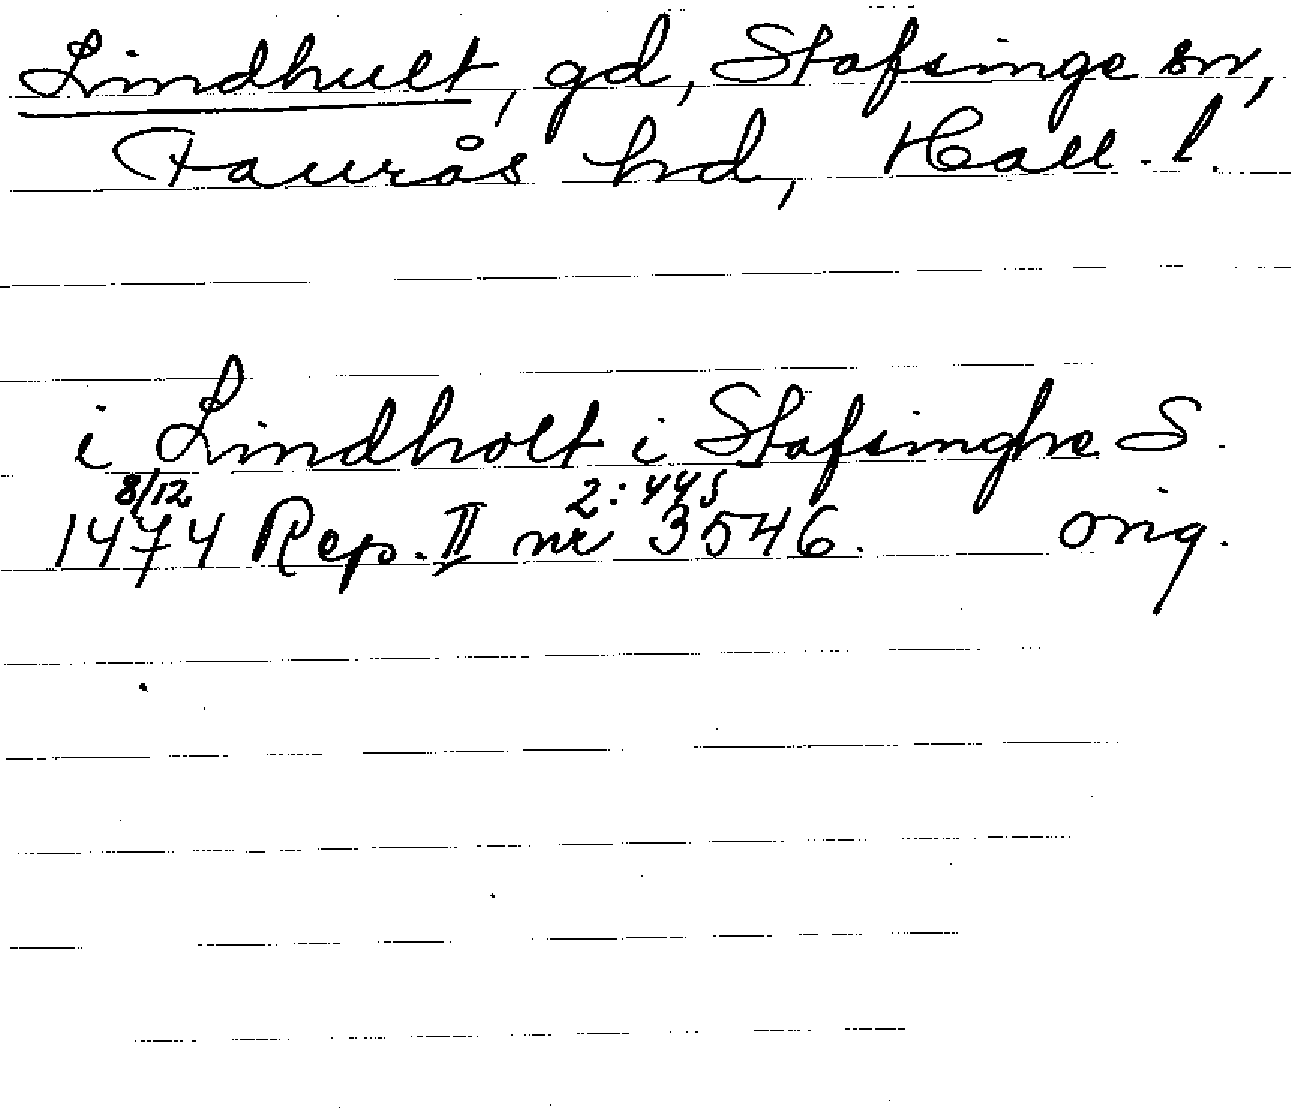 Lindhult, gd, Stafsinge sn,
Faurås hd, Hall. l.
i Lindholt i Stafsinghe S.
8/12 2:445
1474 Rep. II nr 3546. orig.